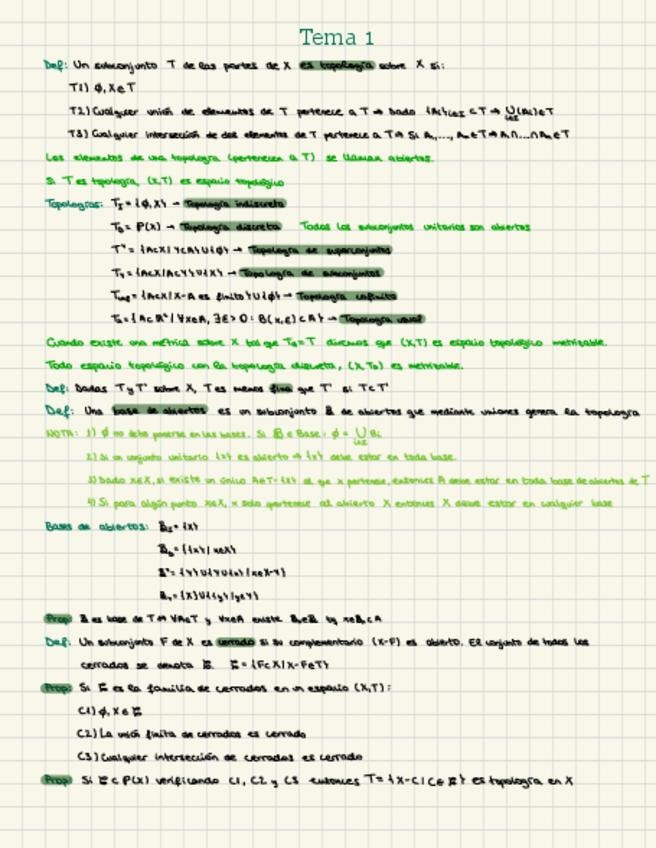 Tema 1
Def: Un subconjunto T de las partes de X es topología sobre X si:
T1) ϕ, X ∈ T
T2) Cualquier unión de elementos de T pertenece a T ⇒ Dado {Ai}i∈I ⊂ T ⇒ ∪i∈I (Ai) ∈ T
T3) Cualquier intersección de dos elementos de T pertenece a T ⇒ Si A1, ..., An ∈ T ⇒ A1 ∩ ... ∩ An ∈ T
Los elementos de una topología (pertenecen a T) se llaman abiertos.
Si T es topología, (X,T) es espacio topológico
Topologías: TI = {ϕ, X} → Topología indiscreta
TD = P(X) → Topología discreta Todos los subconjuntos unitarios son abiertos
TY = {A⊂X / Y⊂A} ∪ {ϕ} → Topología de superconjuntos
TY = {A⊂X / A⊂Y} ∪ {X} → Topología de subconjuntos
= {A⊂X / X-A es finito} ∪ {ϕ} → Topología cofinita
= {A⊂ / ∀x∈A, ∃ε>0 : B(x,ε) ⊂ A} → Topología usual
Cuando existe una métrica sobre X tal que = T diremos que (X,T) es espacio topológico metrizable.
Todo espacio topológico con la topología discreta, (X,TD) es metrizable.
Def: Dadas T y T' sobre X, T es menos fina que T' si T⊂T'
Def: Una base de abiertos es un subconjunto B de abiertos que mediante uniones genera la topología
NOTA: 1) ϕ no debe ponerse en las bases. Si B es Base: ϕ = ∪ Bi
2) Si un conjunto unitario {x} es abierto ⇒ {x} debe estar en toda base.
3) Dado x∈X, si existe un único A∈T-{X} al que x pertenece, entonces A debe estar en toda base de abiertos de T
4) Si para algún punto x∈X, x solo pertenece al abierto X entonces X debe estar en cualquier base
Bases de abiertos: = {X}
BD = {{x} / x∈X}
= {Y} ∪ {Y∪{x} / x∈X-Y}
BY = {X} ∪ {{y} / y∈Y}
Prop: B es base de T ⇔ ∀A∈T y ∀x∈A existe ∈B tq x∈ ⊂A
Def: Un subconjunto F de X es cerrado si su complementario (X-F) es abierto. El conjunto de todos los
cerrados se denota . = {F⊂X / X-F∈T}
Prop: Si es la familia de cerrados en un espacio (X,T):
C1) ϕ, X ∈
C2) La unión finita de cerrados es cerrado
C3) Cualquier intersección de cerrados es cerrado
Prop: Si ⊂ P(X) verificando C1, C2 y C3 entonces T = {X-C / C∈ } es topología en X